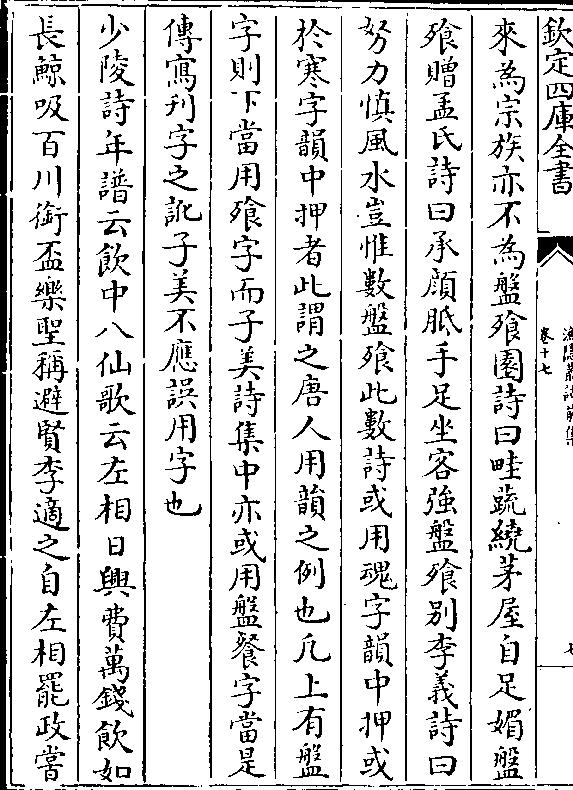 欽定四庫全書
漁隱叢話前集
卷十七
七
來為宗族亦不為盤飱園詩曰畦蔬繞茅屋自足媚盤
飱贈孟氏詩曰承顔胝手足坐客強盤飱别李義詩曰
努力慎風水豈惟數盤飱此數詩或用魂字韻中押或
於寒字韻中押者此謂之唐人用韻之例也凡上有盤
字則下當用飱字而子美詩集中亦或用盤餐字當是
傳寫刋字之訛子美不應誤用字也
少陵詩年譜云飲中八仙歌云左相日興費萬錢飲如
長鯨吸百川銜盃樂聖稱避賢李適之自左相罷政嘗